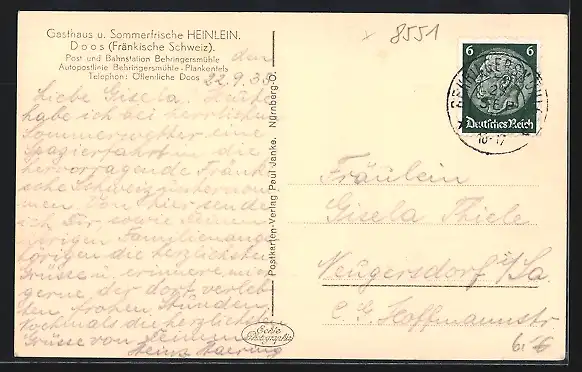 Gasthaus u. Sommerfrische HEINLEIN.
Doos (Fränkische Schweiz).
Post und Bahnstation Behringersmühle
Autopostlinie Behringersmühle-Plankenfels
Telephon: Öffentliche Doos
den
22.9.38.
Liebe Gisela. Heute
habe ich bei herrlichem
Sommerwetter eine
Spazierfahrt in die
hervorragende Fränki-
sche Schweiz unternom-
men. Von hier sende
ich Dir sowie Deinen
übrigen Familienange-
hörigen die herzlichsten
Grüsse u. erinnere mich
gerne der dort verleb-
ten frohen Stunden.
Nochmals die herzlichsten
Grüsse von Deinem
Heinz
Postkarten-Verlag Paul Janke, Nürnberg O.
Echte Photographie
x 8551
6 6
Deutsches Reich
SEP
16-17
Fräulein
Gisela Thiele
Neugersdorf i/Sa.
C. G. Hoffmannstr.